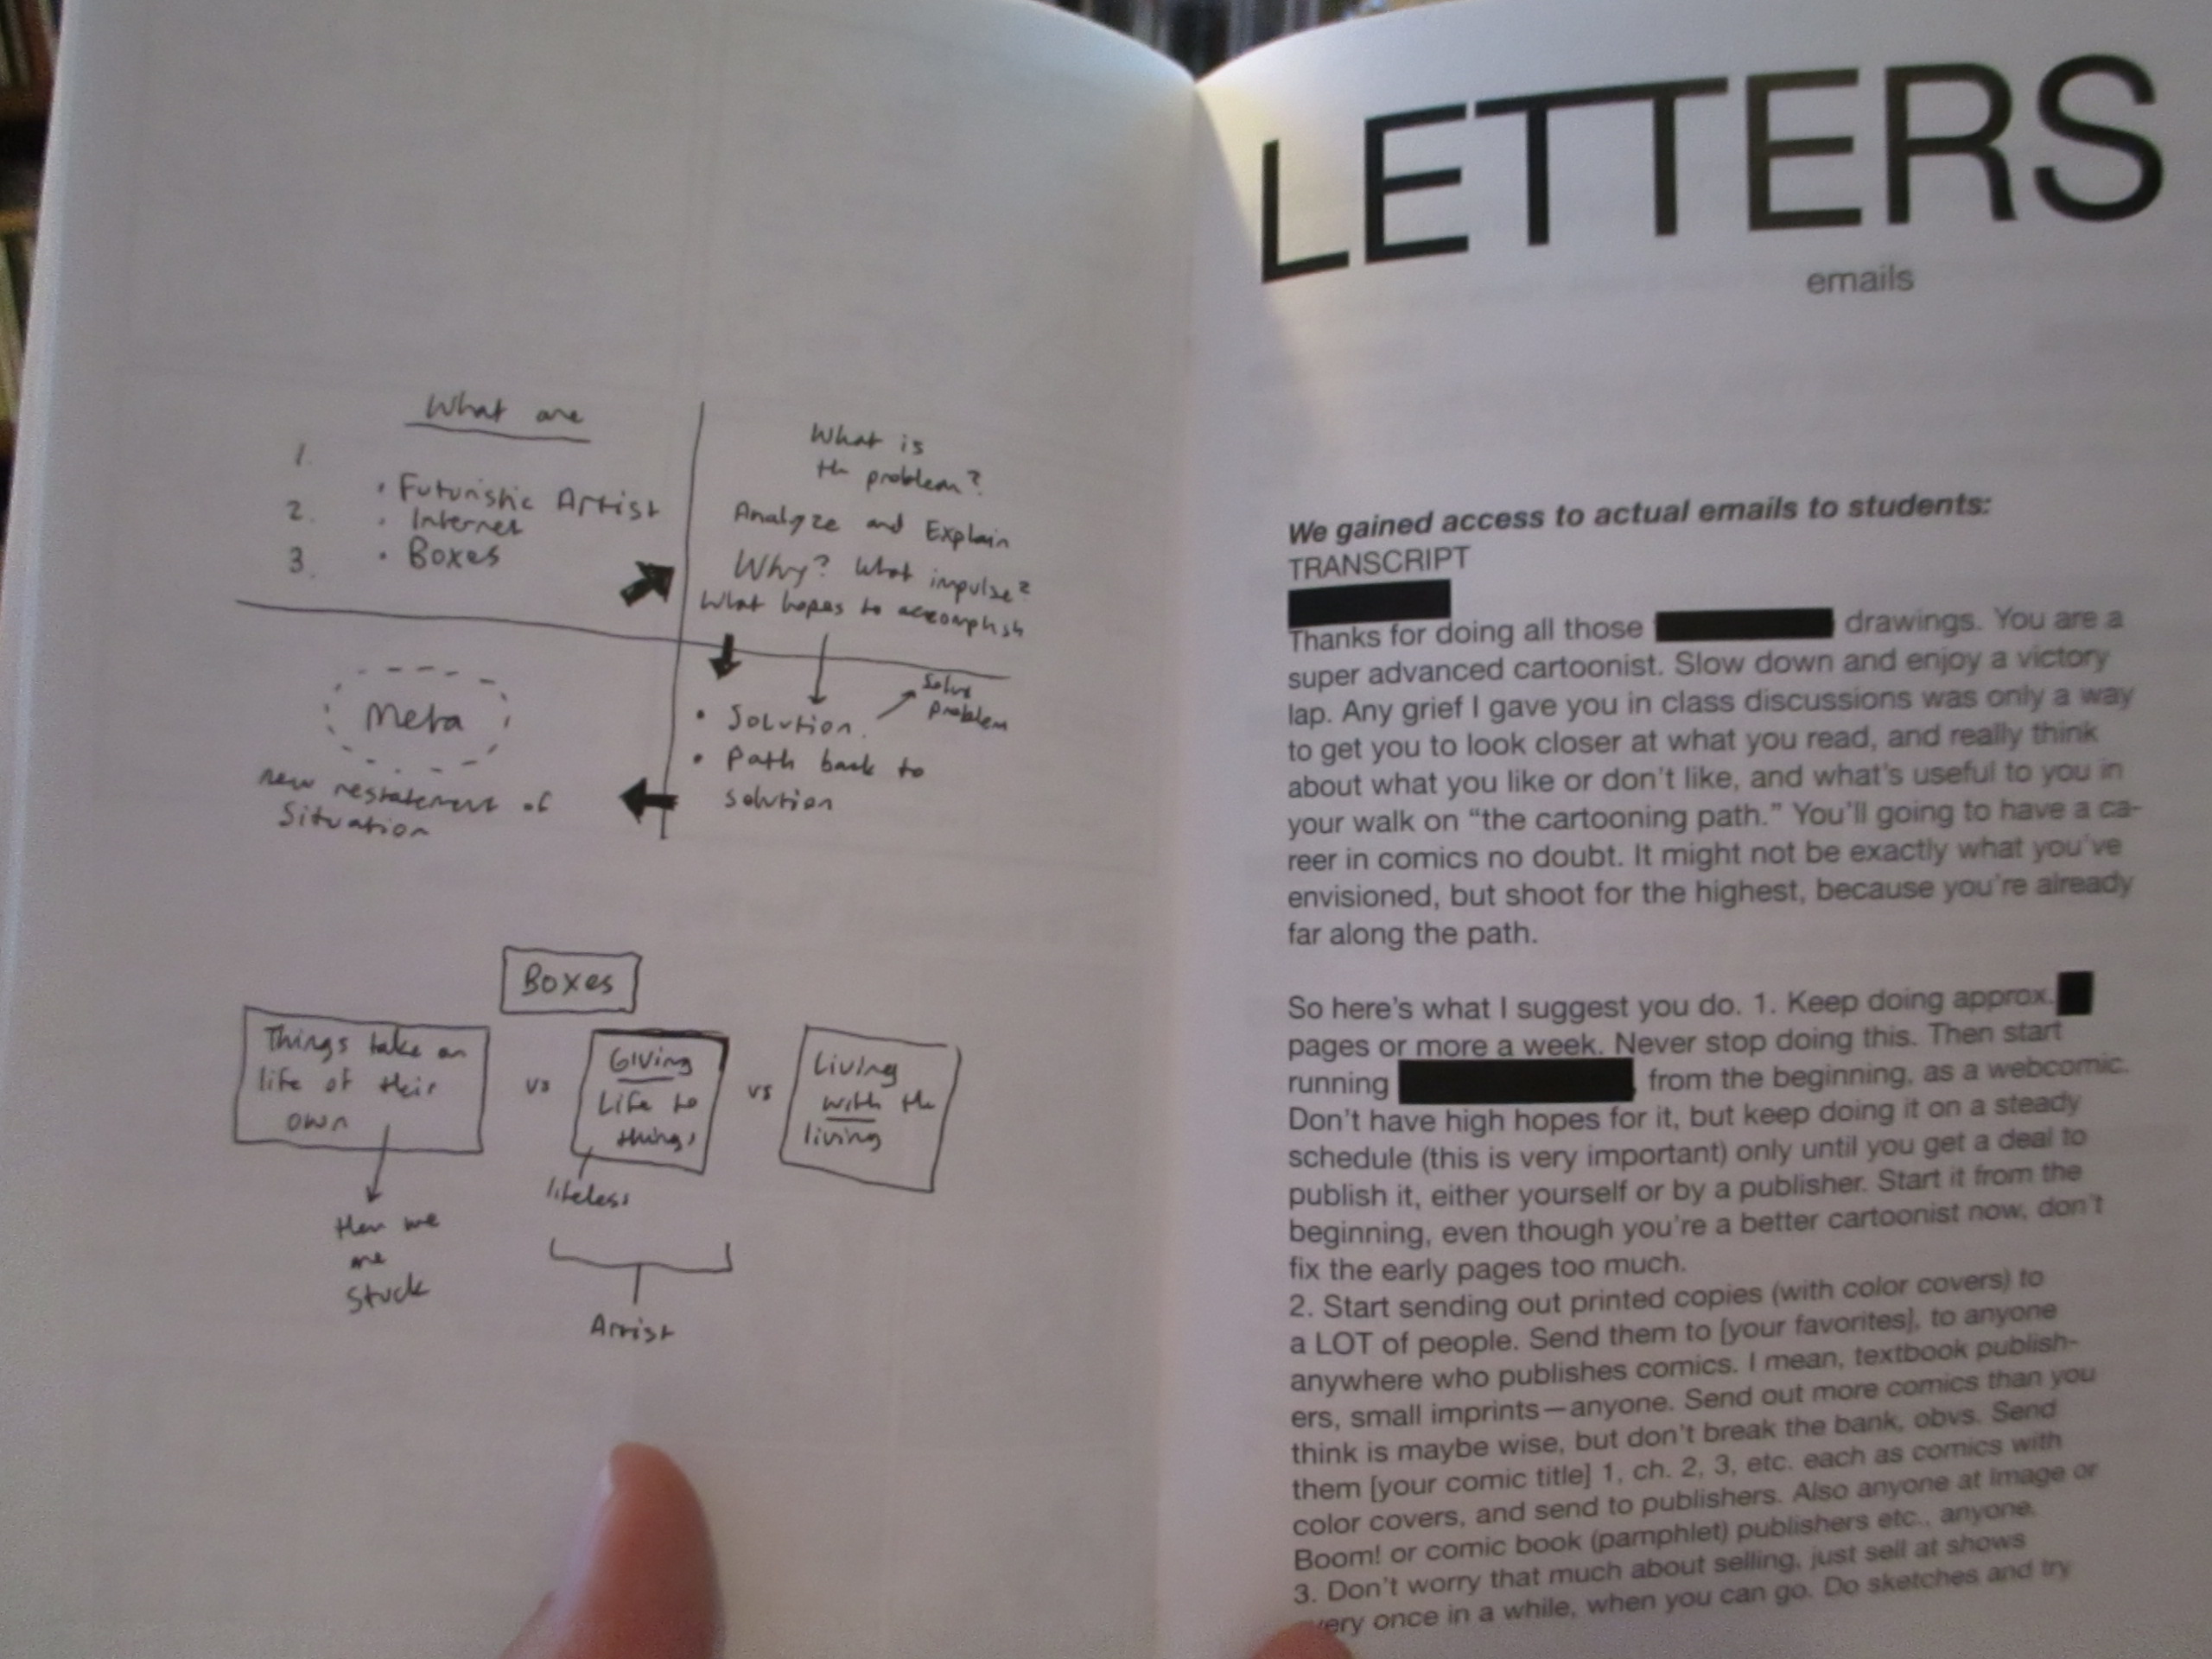 What are
1.
• Futuristic Artist
2.
• Internet
3.
• Boxes
What is
th problem?
Analyze and Explain
Why? What impulse?
What hopes to accomplish
• Solution.
solve
problem
• Path back to
solution
Meta
new restatement of
Situation
Boxes
Things take on
life of their
own
vs
Giving
Life to
things
vs
Living
with th
living
then we
are
stuck
lifeless
Artist
LETTERS
emails
We gained access to actual emails to students:
TRANSCRIPT
Thanks for doing all those drawings. You are a
super advanced cartoonist. Slow down and enjoy a victory
lap. Any grief I gave you in class discussions was only a way
to get you to look closer at what you read, and really think
about what you like or don't like, and what's useful to you in
your walk on “the cartooning path.” You'll going to have a ca-
reer in comics no doubt. It might not be exactly what you've
envisioned, but shoot for the highest, because you're already
far along the path.
So here's what I suggest you do. 1. Keep doing approx.
pages or more a week. Never stop doing this. Then start
running from the beginning, as a webcomic.
Don't have high hopes for it, but keep doing it on a steady
schedule (this is very important) only until you get a deal to
publish it, either yourself or by a publisher. Start it from the
beginning, even though you're a better cartoonist now, don't
fix the early pages too much.
2. Start sending out printed copies (with color covers) to
a LOT of people. Send them to [your favorites], to anyone
anywhere who publishes comics. I mean, textbook publish-
ers, small imprints—anyone. Send out more comics than you
think is maybe wise, but don't break the bank, obvs. Send
them [your comic title] 1, ch. 2, 3, etc. each as comics with
color covers, and send to publishers. Also anyone at Image or
Boom! or comic book (pamphlet) publishers etc., anyone.
3. Don't worry that much about selling, just sell at shows
every once in a while, when you can go. Do sketches and try